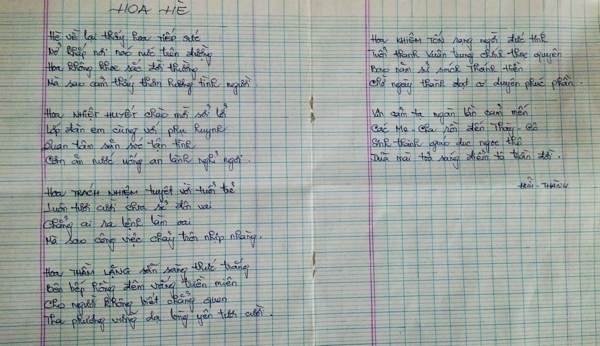 HOA HÈ
Hè về lại thấy hoa tiếp sức
Nở khắp nơi náo nức tiến đường
Hoa không khoe sắc đời thường
Mà sao cảm thấy thơm hương tình người
Hoa NHIỆT HUYẾT chào mời sởi lởi
Lớp đàn em cùng với phụ huynh
Quan tâm săn sóc tận tình
Cơm ăn nước uống an lành nghỉ ngơi.
Hoa TRÁCH NHIỆM tuyệt vời tuổi trẻ
Luôn tươi cười chia sẻ đôn vai
Chẳng ai sa lệnh làm sai
Mà sao công việc chảy trôi nhịp nhàng.
Hoa THẦM LẶNG sẵn sàng thức trắng
Bên bếp hồng đêm vắng triền miên
Cho người không biết chẳng quen
Tha phương vững dạ lòng yên tươi cười.
Hoa KHIÊM TỐN sang ngời đức tính
Tuổi thanh xuân tung chính thực quyền
Bao năm sử sách Thánh Hiền
Chờ ngày thành đạt cơ duyên phúc phần.
Xin cảm tạ ngàn lần cảm mến
Các Mẹ - Cha rồi đến Thầy - Cô
Sinh thành giáo dục ngọc thô
Dũa mài toả sáng điểm tô trần đời.
HOÀI - THÀNH